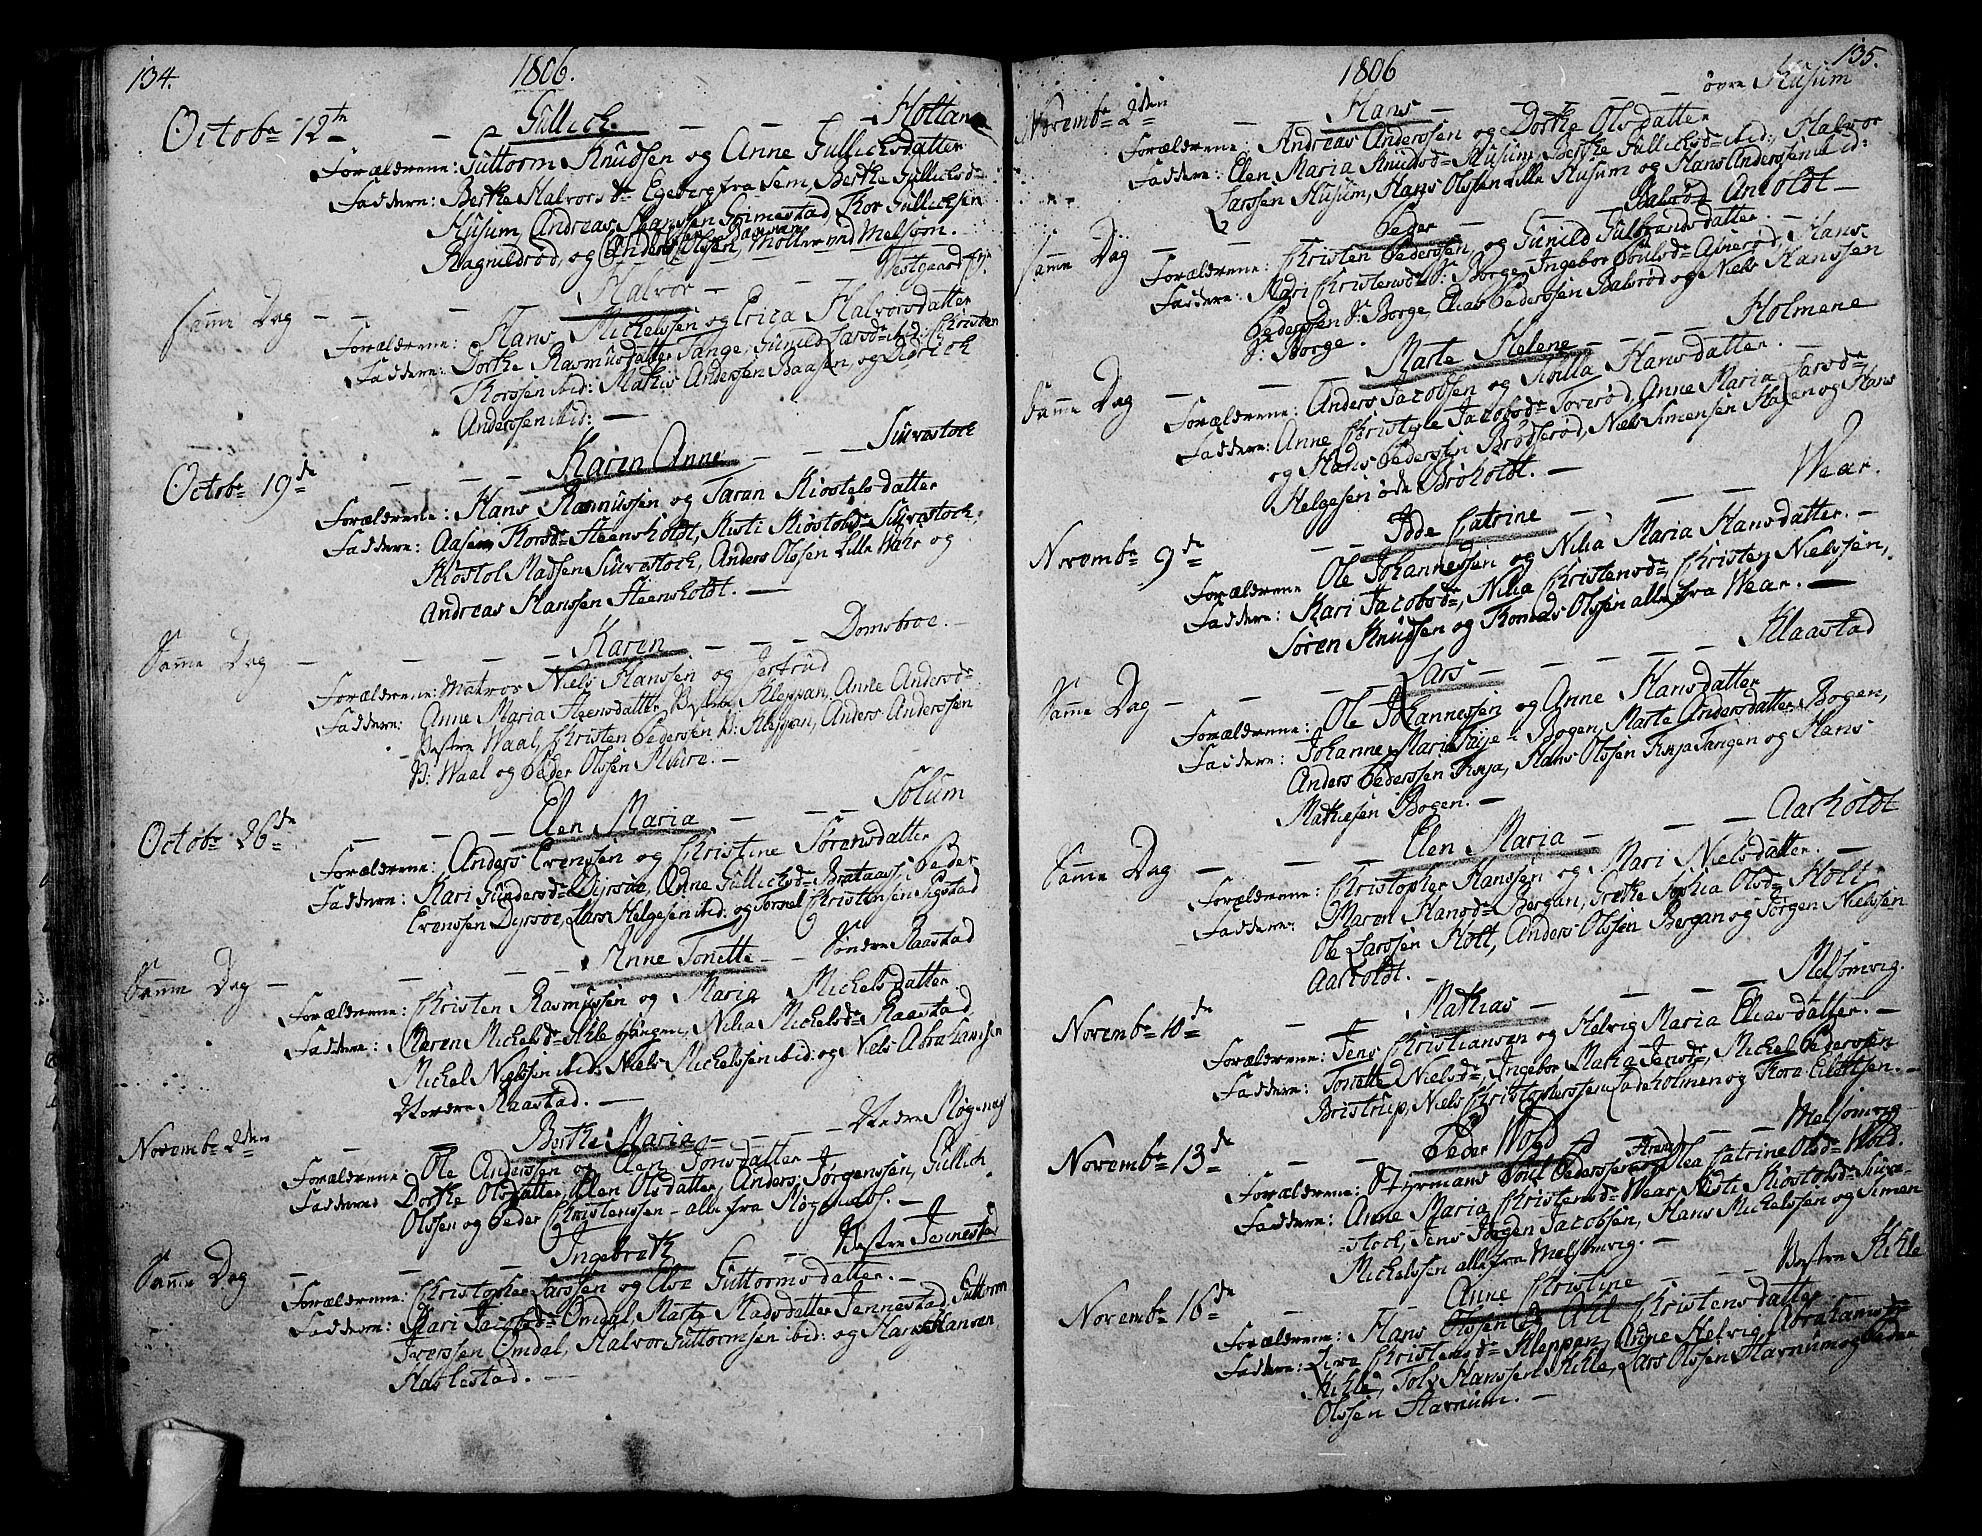 134.
1806.
Octobr 12te
Gullich. — — — Holtan
Forældrene: Guttorm Knudsen og Anne Gullichsdatter
Faddere: Berthe Halvorsdr Egeberg fra Sem, Berthe Gullichsdr
Husum, Andreas Hanssen Grimestad, Thor Gullichsen
Ragnildrød, og Anders Olsen, Møller ved Melsom.
Samme Dag — — Halvor — — — Vestgaard
Forældrene: Hans Michelssen og Erica Halvorsdatter
Faddere: Dorthe Rasmusdatter Tange, Gunild Larsdr ibid: Christen
Thorssen ibid: Mathis Anderssen Baasen, og
Anderssen ibid: —
Octobr 19de — — — Karen Anne — — — Surrestoch
Forældrene: Hans Rasmussen og Taran Kiøstelsdatter
Faddere: Aasen Thorsdr Steensholdt, Kisti Kiøstolsdr Surrestoch,
Kiøstol Madsen Surrestoch, Anders Olssen Lille Wahr og
Andreas Hanssen Steensholdt. —
Samme Dag — — — — Karen — — — Domsbroe. —
Forældrene: Matros Niels Hansen og Jertrud
Faddere: Anne Maria Steensdatter Kleppan, Anne Andersdr
Vestre Waal, Christen Pedersen V: Kleppan, Anders Anderssen
V: Waal og Peder Olssen Muure. —
Octobr 26de — — — Elen Maria — — — Solum
Forældrene: Anders Evenssen og Christine Sørensdatter
Faddere: Kari Gundersdr Dyrsøe, Anne Gullichsdr Brataas, Peder
Evenssen Dyrsøe, Lars Helgesen ibid: og Tornel Christensen Sigstad
Samme Dag — — — — Anne Tonette — Søndre Raastad
Forældrene: Christen Rasmussen og Maria Michelsdatter.
Faddere: Maren Michelsdr Møhangen, Nilia Michelsdr Raastad
Michel Nielssen ibid: Niels Michelssen ibid: og Niels Abrahamsen
Nordre Raastad. —
Novembr 2den — — Berthe Maria — — — Nedre Møgenæs
Forældrene Ole Anderssen og Elen Jonsdatter
Faddere Dorthe Olsdatter, Elen Olsdatter, Anders Jørgenssen, Gullich
Olssen og Peder Christenssen — alle fra Møgenæs. —
Samme Dag — — — Ingebreth — — — Vestre Jennestad
Forældrene: Christopher Larssen og Else Guttormsdatter. —
Faddere: Mari Jacobsdr Omdal, Marte Madsdatter Jennestad, Guttorm
Iverssen Omdal, Halvor Guttormsen ibid: og Hans Hansen
Haslestad. —
135.
1806
Novembr 2den — — Hans — — — — øvre Husum
Forældrene: Andreas Anderssen og Dorthe Olsdatter
Faddere: Elen Maria Knudsdr Husum, Berthe Gullichsdr ibid: Halvor
Larssen Husum, Hans Olssen Lille Husum og Hans Anderssen ibid:
Samme Dag — — Peder — — — Balsrød Anholdt —
Forældrene: Christen Pederssen, og Gunild Gulbrandsdatter. —
Faddere: Mari Christensdr V: Borge, Ingebor Poulsdr Alverød, Hans
Pederssen V: Borge, Elias Pederssen Balsrød og Niels Hanssen
V: Borge.
Samme Dag — — Marte Helene — — — Holmene
Forældrene: Anders Jacobsen og Sivilla Hansdatter. —
Faddere: Anne Christine Jacobsdr Toverød, Anne Maria Larsdr
og Hans Pedersen Brødserød, Niels Simensen Hagen og Hans
Helgesen øde Brøholdt. —
Novembr 9de — — Idde Catrine — — — Wear.
Forældrene Ole Johannessen og Nilia Maria Hansdatter. —
Faddere: Kari Jacobsdr, Nilia Christensdr Christen Nielssen,
Søren Knudssen og Thomas Olssen alle fra Wear. —
Samme Dag — — — Lars — — — — Klaastad
Forældrene: Ole Johannessen og Anne Hansdatter
Faddere: Johanne Maria Føije Bogen, Marte Andersdatter Bogen,
Anders Pederssen Føija, Hans Olssen Føija Tangen og Hans
Mathiesen Bogen. —
Samme Dag — — Elen Maria — — — Aarholdt
Forældrene: Christopher Hanssen og Mari Nielsdatter. —
Faddere: Maren Hansdr Bergan, Grethe Sophia Olsdr Holt
Ole Larssen Holt, Anders Olssen Bergan og Jørgen Nielssen
Aarholdt.
Novembr 10de — — Mathias — — — Melsomvig.
Forældrene: Jens Christiansen og Helvig Maria Eliasdatter. —
Faddere: Tonette Nielsdr, Ingebor Maria Jensdr, Michel Pederssen
Bristrup, Niels Christopherssen Ladeholmen og Thora Eilertsen. —
Novembr 13de — — Peder Wold — — Melsomvig
Forældrene: Styrmand Poul Pederssen og Olea Catrine Olsdr Wold.
Faddere: Anne Maria Christensdr Wear, Kisti Kiøstolsdr Surre-
stoch, Jens Jørgen Jacobsen, Hans Michelssen og Simen
Michelssen alle fra Melsomvig. —
Novembr 16de — — Anne Christine — — — Vestre Kihle
Forældrene: Hans Olssen og Alt Christensdatter
Faddere: Live Christensdr Kleppan, Anne Helvig Abrahamsdr
Kihle, Tolv Hanssen Kihle, Lars Olssen Havnum og Peder
Olssen Havnum. —